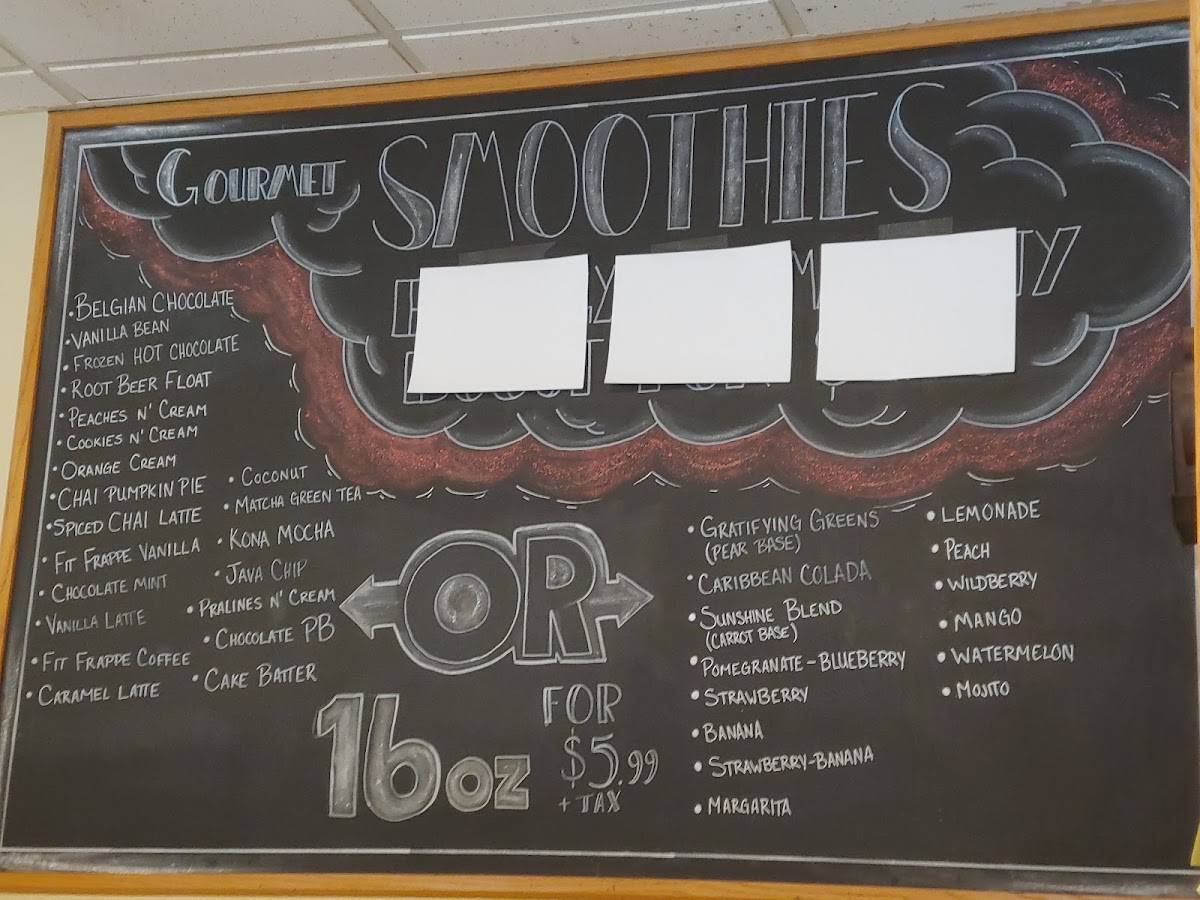 GOURMET SMOOTHIES
• BELGIAN CHOCOLATE
• VANILLA BEAN
• FROZEN HOT CHOCOLATE
• ROOT BEER FLOAT
• PEACHES N' CREAM
• COOKIES N' CREAM
• ORANGE CREAM
• CHAI PUMPKIN PIE
• SPICED CHAI LATTE
• FIT FRAPPE VANILLA
• CHOCOLATE MINT
• VANILLA LATTE
• FIT FRAPPE COFFEE
• CARAMEL LATTE
• COCONUT
• MATCHA GREEN TEA
• KONA MOCHA
• JAVA CHIP
• PRALINES N' CREAM
• CHOCOLATE PB
• CAKE BATTER
OR
16oz
FOR
$5.99
+ TAX
• GRATIFYING GREENS
(PEAR BASE)
• CARIBBEAN COLADA
• SUNSHINE BLEND
(CARROT BASE)
• POMEGRANATE-BLUEBERRY
• STRAWBERRY
• BANANA
• STRAWBERRY-BANANA
• MARGARITA
• LEMONADE
• PEACH
• WILDBERRY
• MANGO
• WATERMELON
• MOJITO